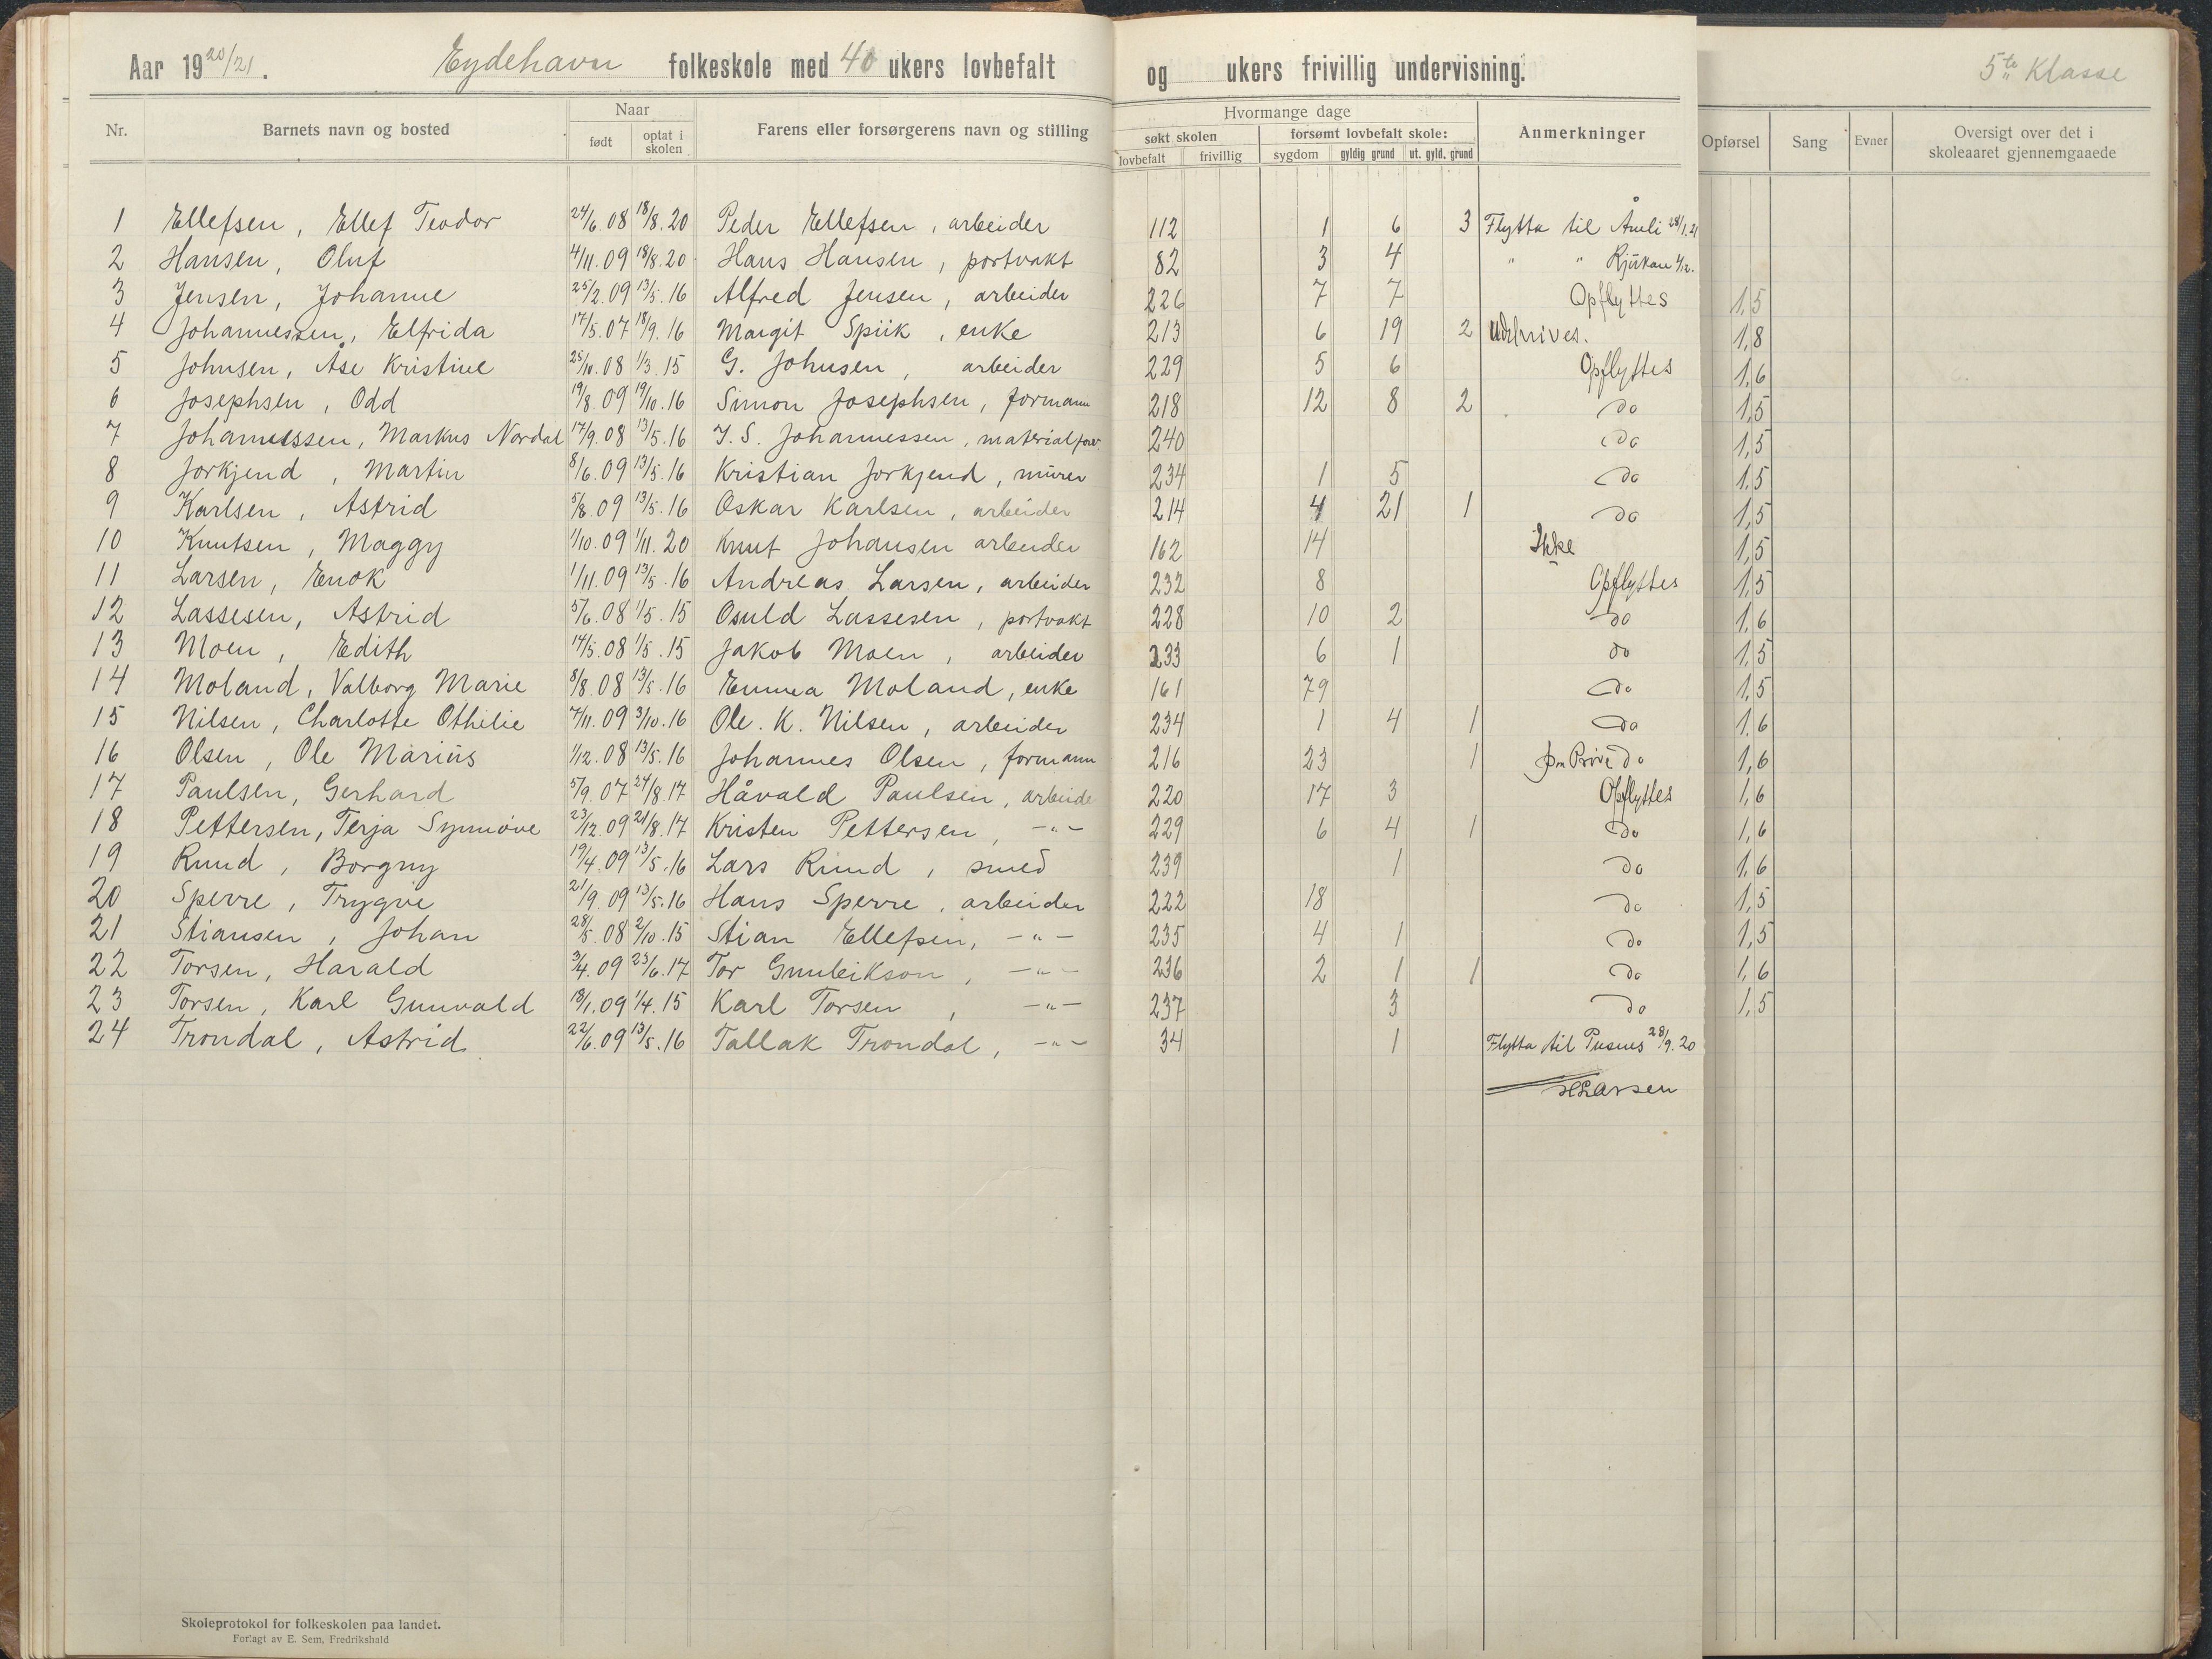 Aar 1920/21. Eydehavn folkeskole med 40 ukers lovbefalt og ukers frivillig undervisning. 5te Klasse
Nr. Barnets navn og bosted Naar født optat i skolen Farens eller forsørgerens navn og stilling Hvormange dage søkt skolen lovbefalt frivillig forsømt lovbefalt skole: sygdom gyldig grund ut. gyld. grund Anmerkninger Opførsel Sang Evner Oversigt over det i skoleaaret gjennemgaaede
1 Ellefsen, Ellef Teodor 24/6.08 18/8.20 Peder Ellefsen, arbeider 112 1 6 3 Flytta til Åmli 28/1.21
2 Hansen, Oluf 4/11.09 18/8.20 Hans Hansen, portvakt 82 3 4 " " Rjukan 4/12.
3 Jensen, Johanne 25/2.09 13/5.16 Alfred Jensen, arbeider 226 7 7 Opflyttes 1,5
4 Johannessen, Elfrida 17/5.07 18/9.16 Margit Spiik, enke 213 6 19 2 Udskrives. 1,8
5 Johnsen, Åse Kristine 25/10.08 1/3.15 G. Johnsen, arbeider 229 5 6 Opflyttes 1,6
6 Josephsen, Odd 19/8.09 19/10.16 Simon Josephsen, formann 218 12 8 2 do 1,5
7 Johannessen, Markus Nordal 17/9.08 13/5.16 J. S. Johannessen, materialforv. 240 do 1,5
8 Jorkjend, Martin 8/6.09 13/5.16 Kristian Jorkjend, murer 234 1 5 do 1,5
9 Karlsen, Astrid 5/8.09 13/5.16 Oskar Karlsen, arbeider 214 4 21 1 do 1,5
10 Knutsen, Maggy 1/10.09 1/11.20 Knut Johansen arbeider 162 14 Ikke 1,5
11 Larsen, Enok 1/11.09 13/5.16 Andreas Larsen, arbeider 232 8 Opflyttes 1,5
12 Lassesen, Astrid 5/6.08 1/5.15 Osuld Lassesen, portvakt 228 10 2 do 1,6
13 Moen, Edith 14/5.08 1/5.15 Jakob Moen, arbeider 233 6 1 do 1,5
14 Moland, Valborg Marie 8/8.08 13/5.16 Emma Moland, enke 161 79 do 1,5
15 Nilsen, Charlotte Othilie 7/11.09 3/10.16 Ole. K. Nilsen, arbeider 234 1 4 1 do 1,6
16 Olsen, Ole Marius 1/12.08 13/5.16 Johannes Olsen, formann 216 23 1 paa Prøve do 1,6
17 Paulsen, Gerhard 5/9.07 24/8.17 Håvald Paulsen, arbeide 220 17 3 Opflyttes 1,6
18 Pettersen, Terja Synnøve 23/12.09 21/8.17 Kristen Pettersen, -"- 229 6 4 1 do 1,6
19 Ruud, Borgny 19/4.09 13/5.16 Lars Ruud, smed 239 1 do 1,6
20 Sperre, Trygve 21/9.09 13/5.16 Hans Sperre, arbeider 222 18 do 1,5
21 Stiansen, Johan 28/5.08 2/10.15 Stian Ellefsen, -"- 235 4 1 do 1,5
22 Torsen, Harald 3/4.09 23/6.17 Tor Gunleikson, -"- 236 2 1 1 do 1,6
23 Torsen, Karl Gunvald 18/1.09 1/4.15 Karl Torsen, -"- 237 3 do 1,5
24 Trondal, Astrid 22/6.09 13/5.16 Tallak Trondal, -"- 34 1 Flytta til Pusnes 28/9.20
HLarsen
Skoleprotokol for folkeskolen paa landet.
Forlagt av E. Sem, Fredrikshald